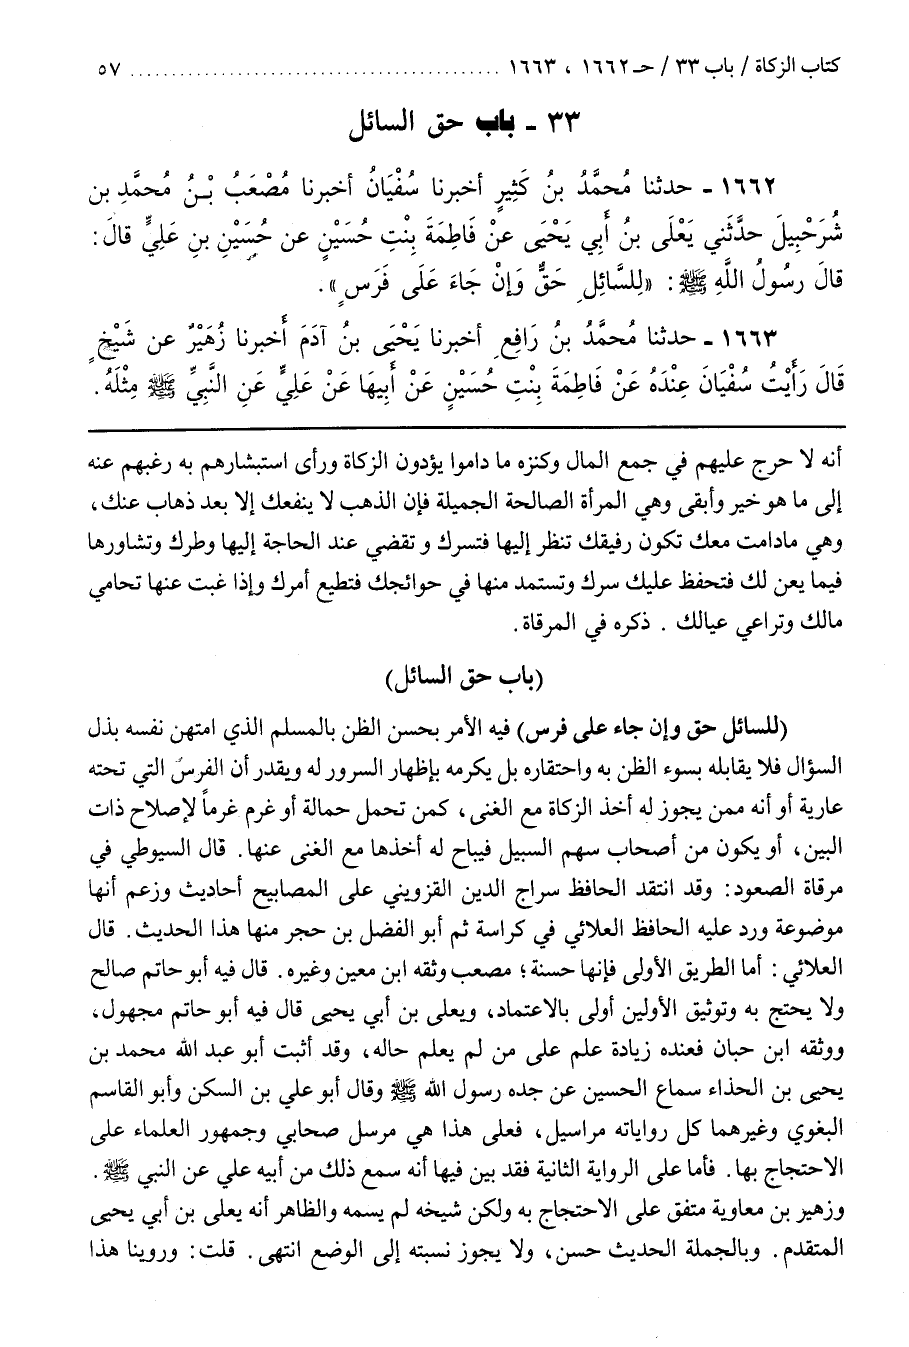 كتاب الزكاة / باب ٣٣ / حـ ١٦٦٢ ، ١٦٦٣ ............................................ ٥٧
٣٣ - باب حق السائل
١٦٦٢ - حدثنا مُحمَّدُ بنُ كَثِيرٍ أخبرنا سُفْيَانُ أخبرنا مُصْعَبُ بْـنُ مُحمَّدِ بن
شُرَحْبِيلَ حدَّثَني يَعْلَى بنُ أَبِي يَحْيَى عنْ فَاطِمَةَ بِنْتِ حُسَيْنٍ عن حُسَيْنِ بنِ عَلِيٍّ قالَ:
قالَ رسُولُ اللَّهِ ﷺ: «لِلسَّائِلِ حَقٌّ وَإنْ جَاءَ عَلَى فَرَسٍ».
١٦٦٣ - حدثنا مُحمَّدُ بنُ رَافِعٍ أخبرنا يَحْيَى بنُ آدَمَ أَخبرنا زُهَيْرٌ عن شَيْخٍ
قَالَ رَأَيْتُ سُفْيَانَ عِنْدَهُ عَنْ فَاطِمَةَ بِنْتِ حُسَيْنٍ عَنْ أَبِيهَا عَنْ عَلِيٍّ عَنِ النَّبِيِّ ﷺ مِثْلَهُ.
أنه لا حرج عليهم في جمع المال وكنزه ما داموا يؤدون الزكاة ورأى استبشارهم به رغبهم عنه
إلى ما هو خير وأبقى وهي المرأة الصالحة الجميلة فإن الذهب لا ينفعك إلا بعد ذهاب عنك،
وهي مادامت معك تكون رفيقك تنظر إليها فتسرك و تقضي عند الحاجة إليها وطرك وتشاورها
فيما يعن لك فتحفظ عليك سرك وتستمد منها في حوائجك فتطيع أمرك وإذا غبت عنها تحامي
مالك وتراعي عيالك . ذكره في المرقاة.
(باب حق السائل)
(للسائل حق وإن جاء على فرس) فيه الأمر بحسن الظن بالمسلم الذي امتهن نفسه بذل
السؤال فلا يقابله بسوء الظن به واحتقاره بل يكرمه بإظهار السرور له ويقدر أن الفرس التي تحته
عارية أو أنه ممن يجوز له أخذ الزكاة مع الغنى، كمن تحمل حمالة أو غرم غرماً لإصلاح ذات
البين، أو يكون من أصحاب سهم السبيل فيباح له أخذها مع الغنى عنها. قال السيوطي في
مرقاة الصعود: وقد انتقد الحافظ سراج الدين القزويني على المصابيح أحاديث وزعم أنها
موضوعة ورد عليه الحافظ العلائي في كراسة ثم أبو الفضل بن حجر منها هذا الحديث. قال
العلائي: أما الطريق الأولى فإنها حسنة؛ مصعب وثقه ابن معين وغيره. قال فيه أبو حاتم صالح
ولا يحتج به وتوثيق الأولين أولى بالاعتماد، ويعلى بن أبي يحيى قال فيه أبو حاتم مجهول،
ووثقه ابن حبان فعنده زيادة علم على من لم يعلم حاله، وقد أثبت أبو عبد الله محمد بن
يحيى بن الحذاء سماع الحسين عن جده رسول الله ﷺ وقال أبو علي بن السكن وأبو القاسم
البغوي وغيرهما كل رواياته مراسيل، فعلى هذا هي مرسل صحابي وجمهور العلماء على
الاحتجاج بها. فأما على الرواية الثانية فقد بين فيها أنه سمع ذلك من أبيه علي عن النبي ﷺ.
وزهير بن معاوية متفق على الاحتجاج به ولكن شيخه لم يسمه والظاهر أنه يعلى بن أبي يحيى
المتقدم. وبالجملة الحديث حسن، ولا يجوز نسبته إلى الوضع انتهى. قلت: وروينا هذا